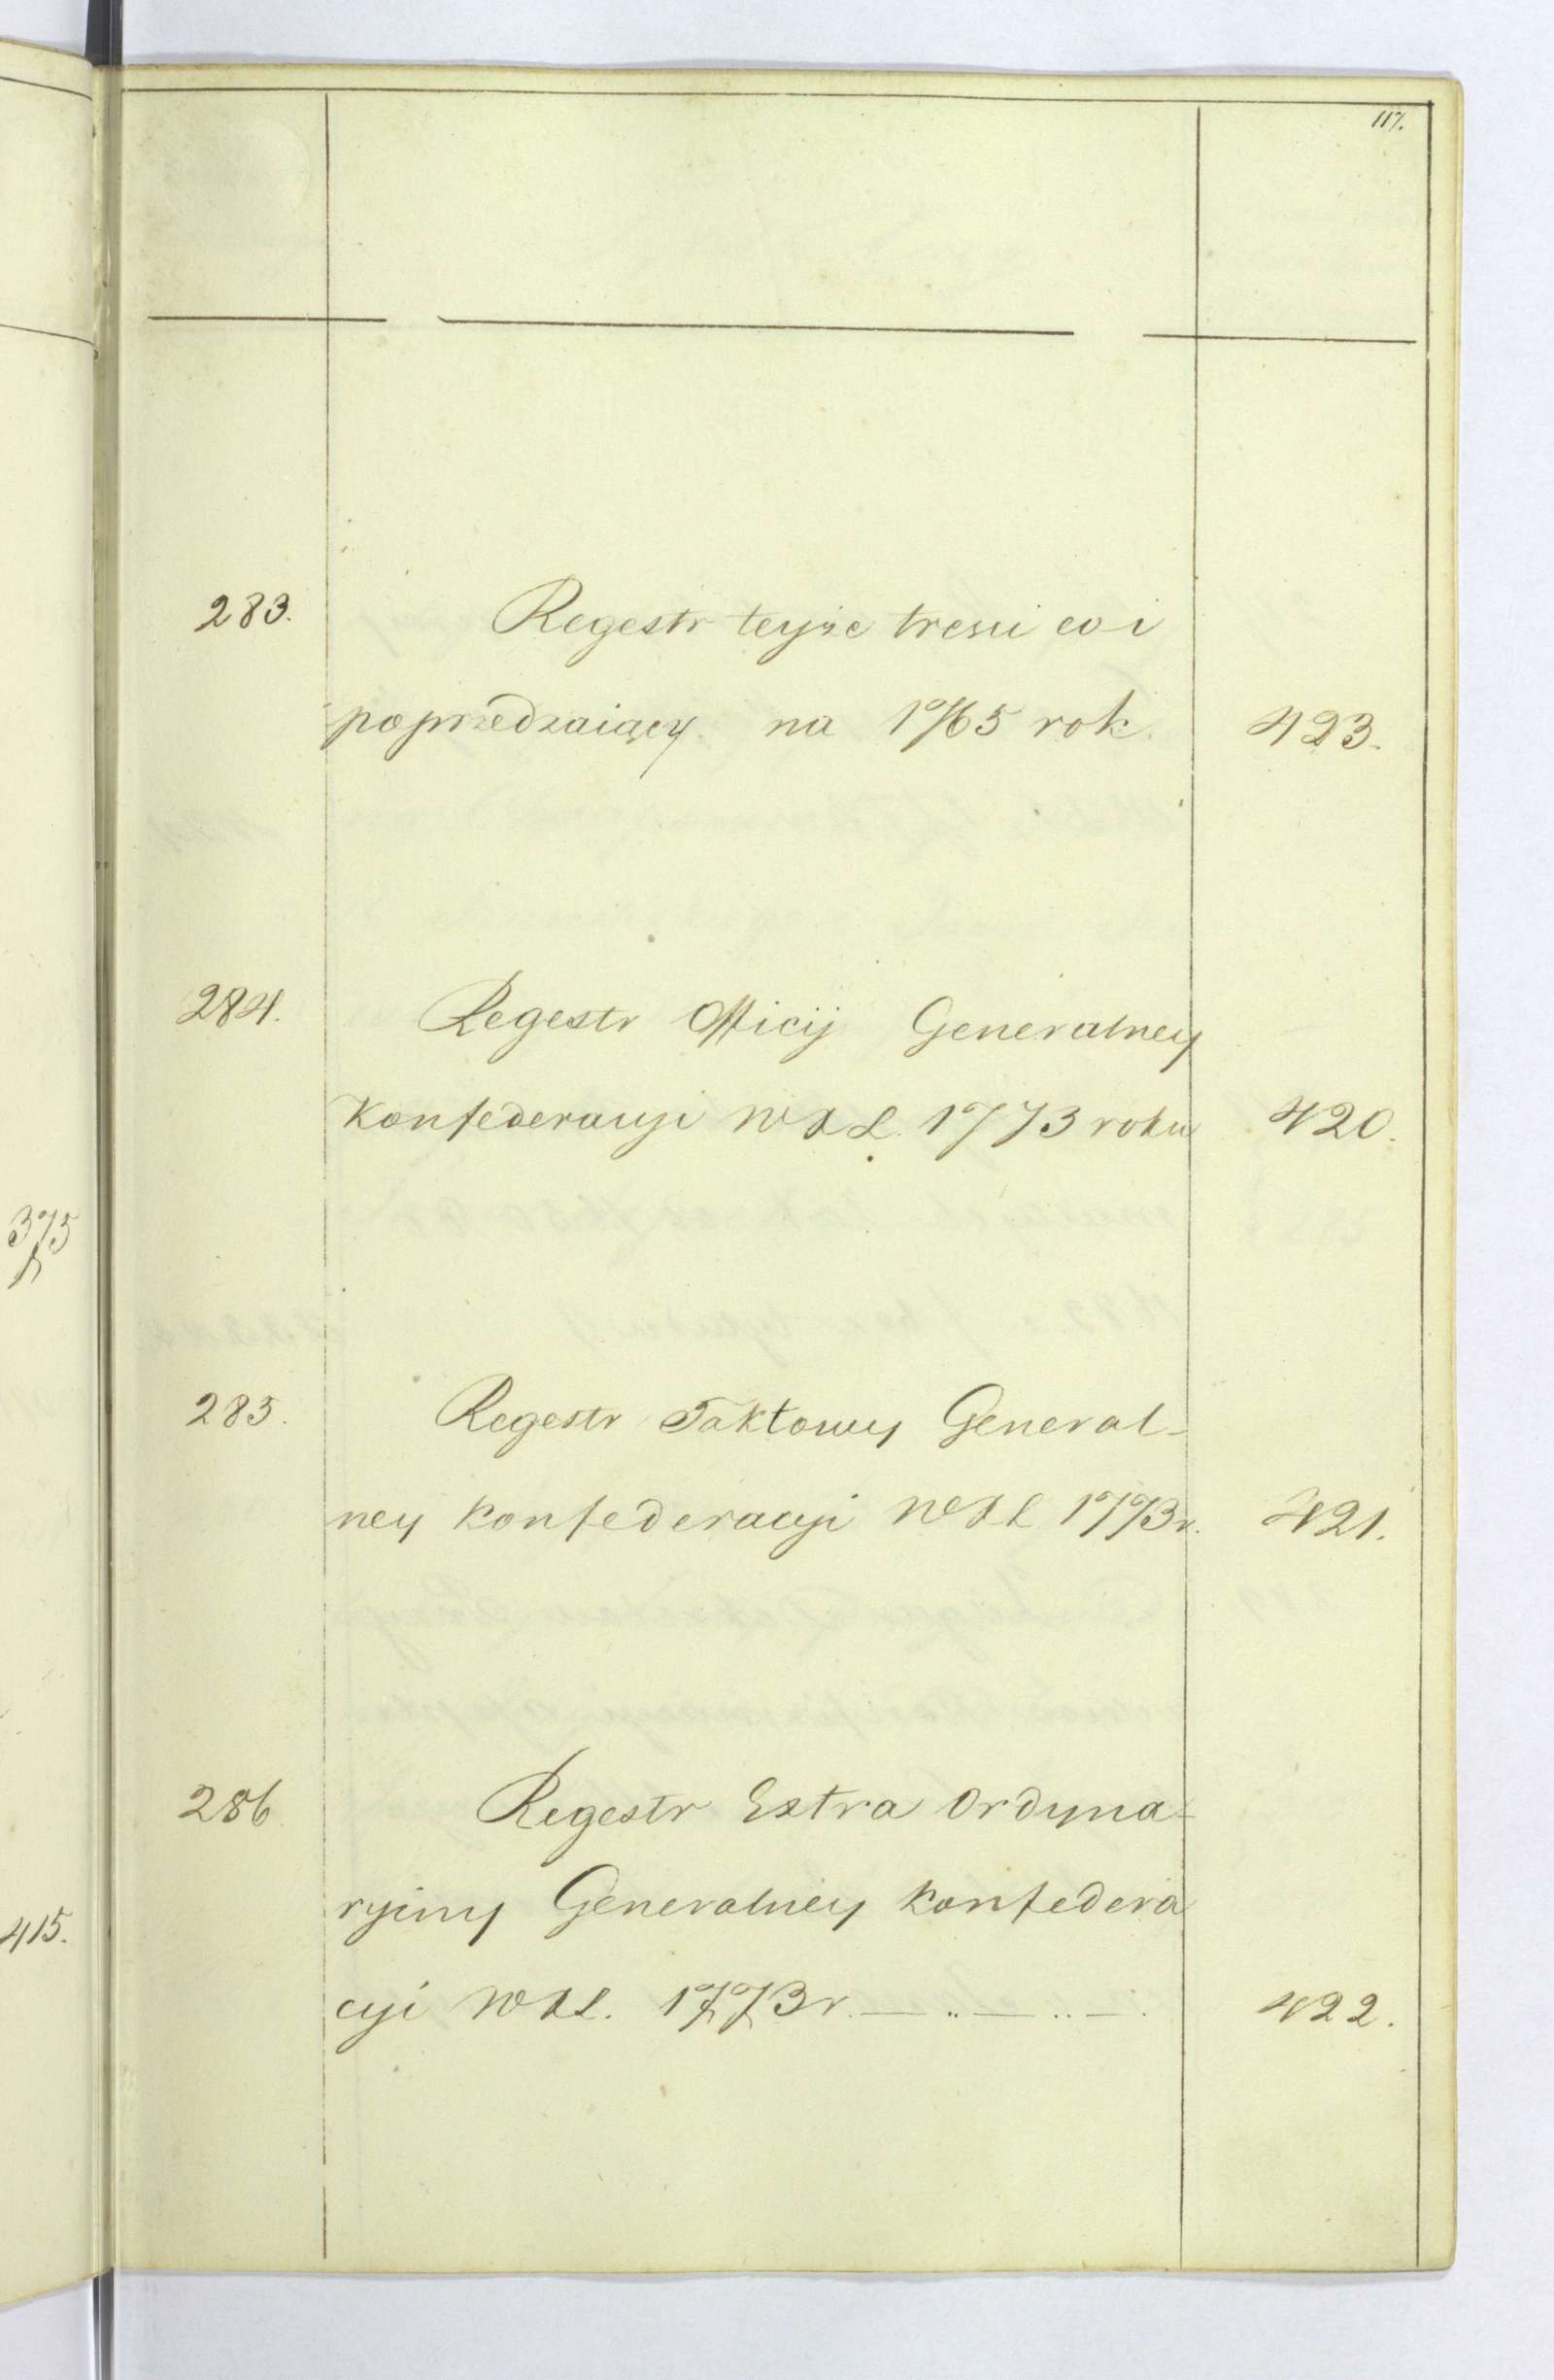 117.
283. Regestr teyże tresci co i
poprzedzaiący na 1765 rok. 423.
284. Regestr Officij Generalney
Konfederacyi WXL. 1773 roku 420.
285. Regestr Taktowy General-
ney Konfederacyi WXL 1773 r. 421.
286 Regestr Extra Ordyna-
ryiny Generalney Konfedera
cyi WXL. 1773 r. — .. — .. — . 422.
375
415.